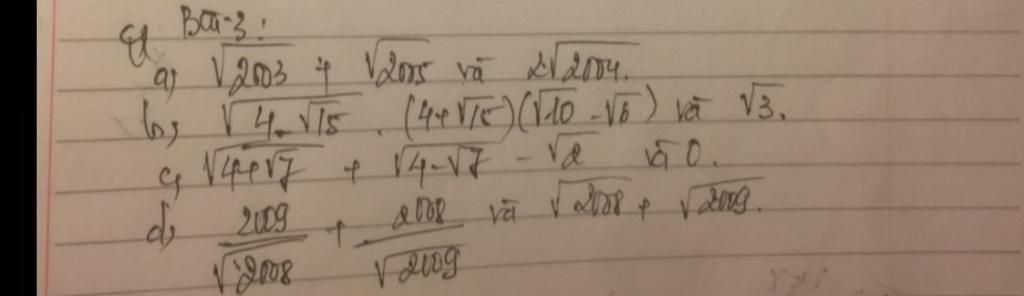 Bài 3:
a, √2003 + √2005 và 2√2004.
b, √(4-√15) . (4+√15)(√10 - √6) và √3.
c, √(4+√7) + √(4-√7) - √2 và 0.
d, 2009/√2008 + 2008/√2009 và √2008 + √2009.